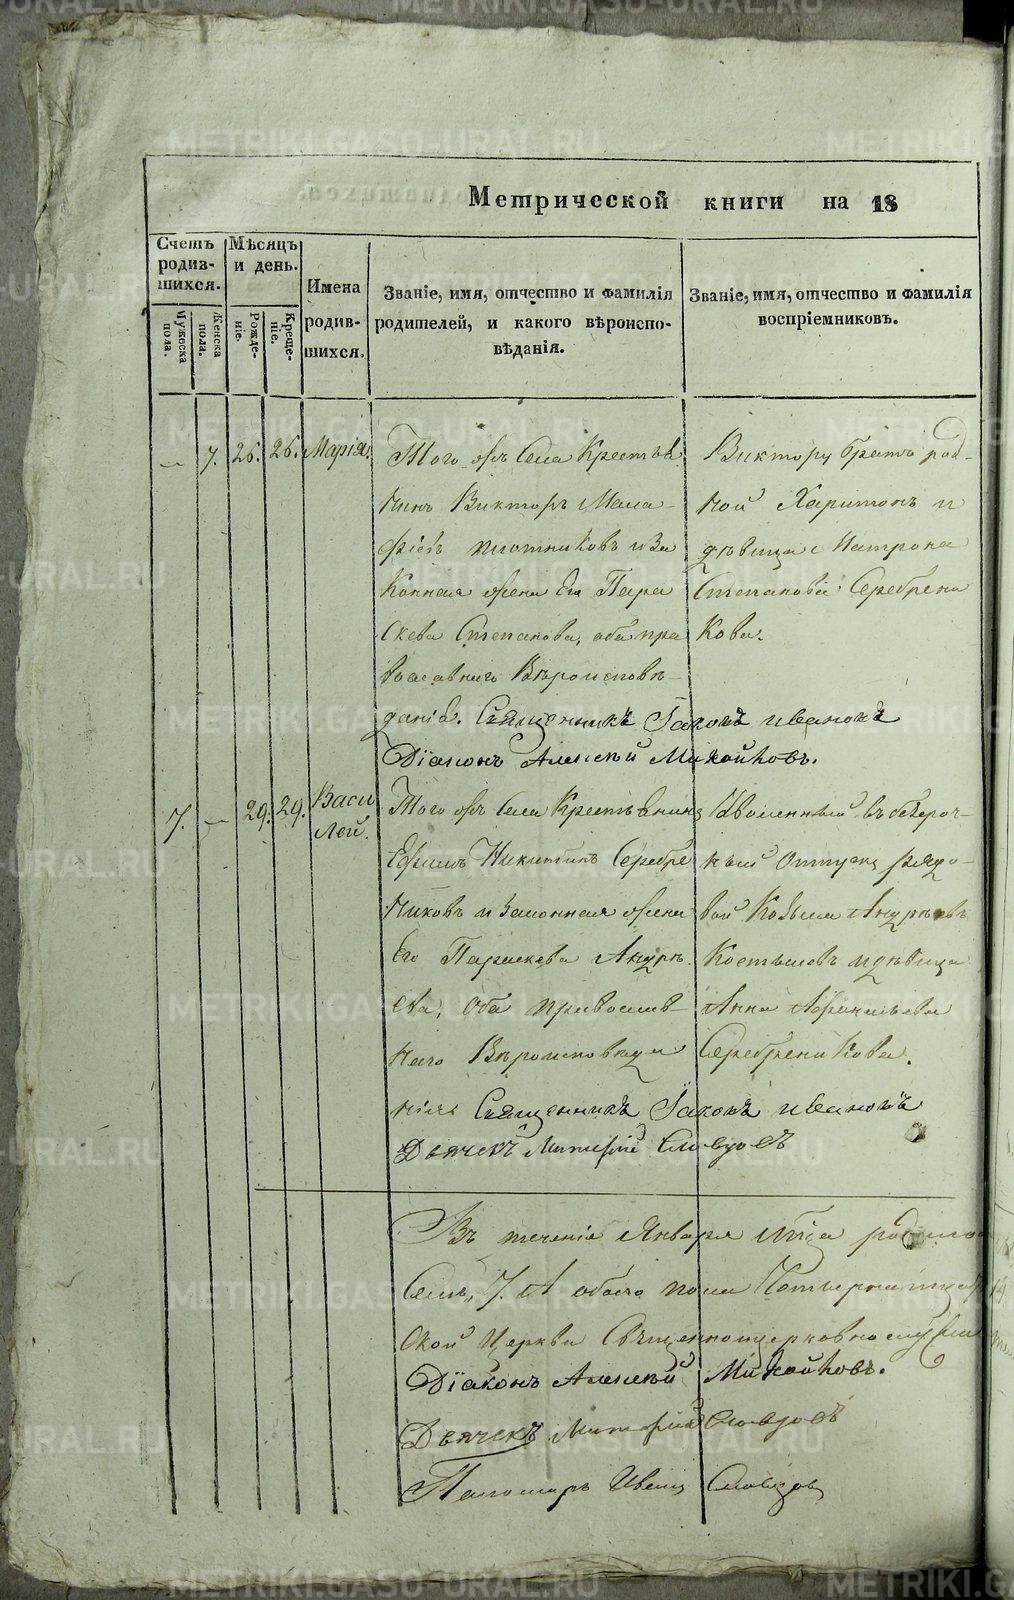 Метрической книги на 18
Счетъ родив-шихся.
Мужеска пола.
Женска пола.
Мѣсяцъ и день.
Рожде-ніе.
Креще-ніе.
Имена родив-шихся.
Званіе, имя, отчество и фамилія родителей, и какого вѣроиспо-вѣданія.
Званіе, имя, отчество и фамилія воспріемниковъ.
— 7. 26. 26. Марія.
Того жъ Села Крестья
нинъ Викторъ Мала
фѣевъ Плотниковъ и За
конная жена Его Пара
скева Степанова, оба пра
вославнаго Вѣроисповѣ
данія. Священникъ Іаковъ Ивановъ
Діаконъ Алексѣй
Виктору братъ род-
ной Харитонъ и
дѣвица Матрона
Степанова Серебрени
кова.
7. — 29. 29. Васи
лей.
Того жъ Села Крестьянинъ
Ефимъ Никитинъ Серебре
никовъ и Законная жена
Его Параскева Андрѣ
ева, оба православ-
наго Вѣроисповѣда
нія Священникъ Іаковъ Ивановъ
Дьячекъ Словцовъ
Уволенный въ безсроч-
ный отпускъ рядо-
вой Козьма Андрѣевъ
Костылевъ и дѣвица
Анна Афанасьева
Серебреникова.
Въ теченіе Января м̃ца
7. А обоего пола
ской Церкви Священноцерковнослужи
Діаконъ Алексѣй
Дьячекъ Словцовъ
Пономарь Иванъ Словцовъ
METRIKI.GASO-URAL.RU